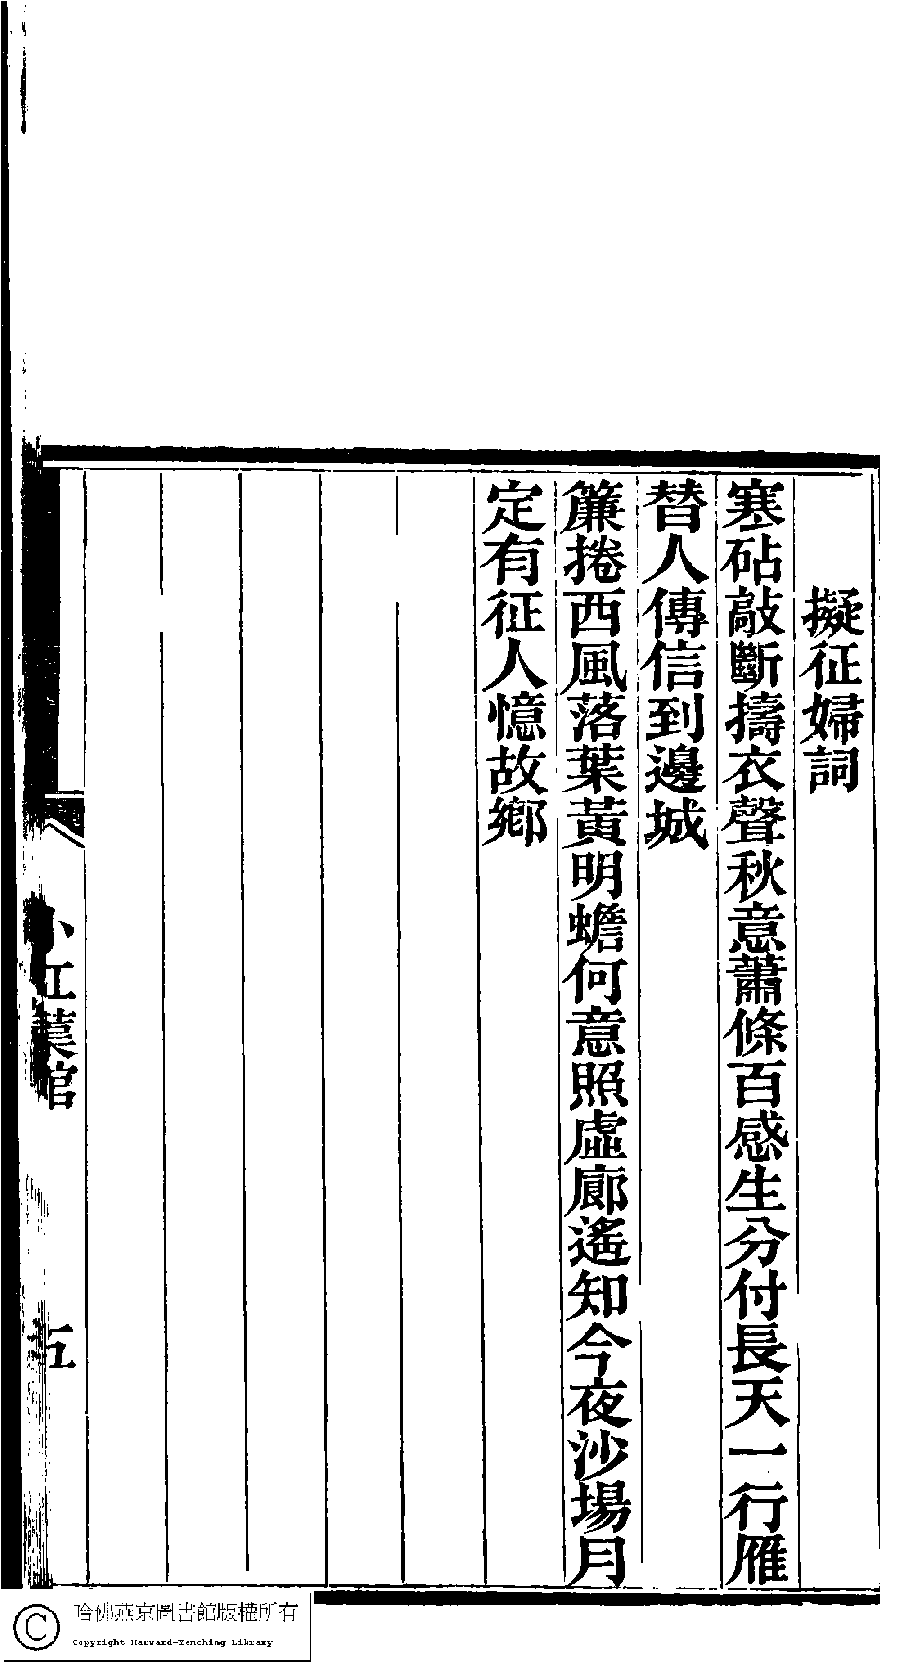 擬征婦詞
寒砧敲斷擣衣聲秋意蕭條百感生分付長天一行雁
替人傳信到邊城
簾捲西風落葉黃明蟾何意照虛廊遙知今夜沙場月
定有征人憶故鄉
小紅葉館
五
哈佛燕京圖書館版權所有
Copyright Harvard-Yenching Library